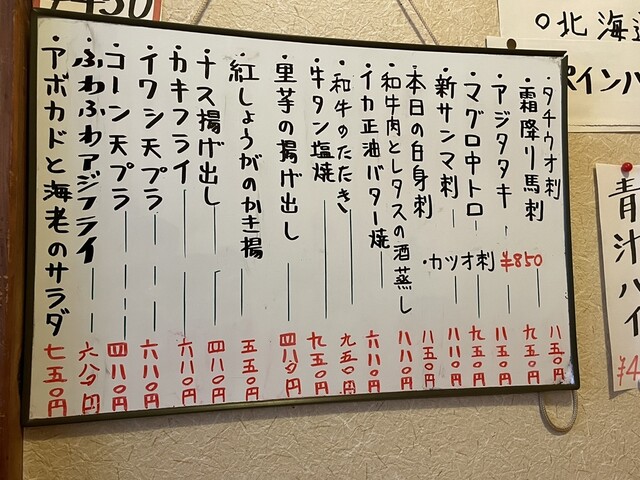 ○北海道
パインハ
青汁ハイ
¥4
¥450
・タチウオ刺 八五〇円
・霜降り馬刺 九五〇円
・アジタタキ 八五〇円
・マグロ中トロ 九五〇円
・新サンマ刺 八八〇円
・カツオ刺 ¥850
・本日の白身刺 八五〇円
・和牛肉とレタスの酒蒸し 八八〇円
・イカ正油バター焼 六八〇円
・和牛のたたき 九五〇円
・牛タン塩焼 九五〇円
・里芋の揚げ出し 四八〇円
・紅しょうがのかき揚 五五〇円
・ナス揚げ出し 四八〇円
・カキフライ 六八〇円
・イワシ天プラ 六八〇円
・コーン天プラ 四八〇円
・ふわふわアジフライ 六八〇円
・アボカドと海老のサラダ 七五〇円